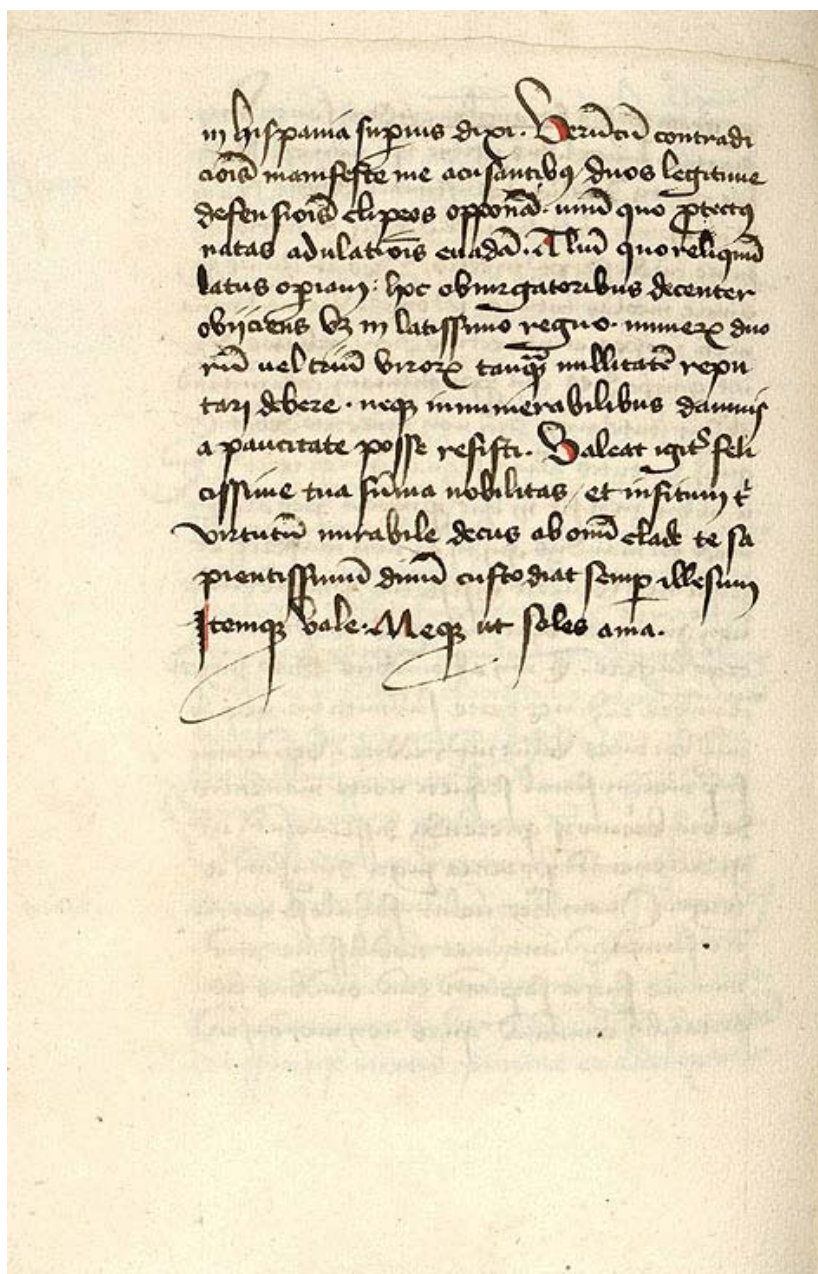 in hispania superius dixi. Verūtn̄ contradi
ciōis manifeste me acusantibꝫ duos legitime
defensiōis clipeos opponā. unū quo ꝓtectꝰ
notas adulatiōis euadā. Aliū quo reliquū
latus operiam: hoc obiurgatoribus decenter
obijciens vꝫ in latissimo regno. numerꝝ duo
rū uel triū virorꝝ tanꝗ̄ nullitatē repu
tari debere. neqꝫ innumerabilibus damnis
a paucitate posse resisti. Valeat igit᷑ feli
cissime tua sūma nobilitas / et insitum t᷑
virtutū mirabile decus ab omī clade te sa
pientissimū diuū custodiat semꝑ illesum
Itemqꝫ vale. Meqꝫ ut soles ama.